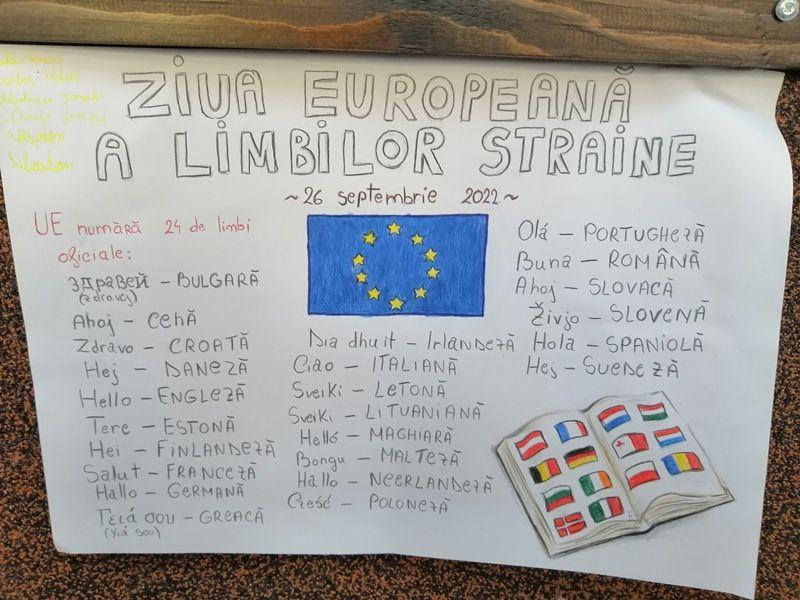 ZIUA EUROPEANĂ
A LIMBILOR STRAINE
~26 septembrie 2022~
UE numără 24 de limbi
oficiale:
здравей – BULGARĂ
(zdravej)
Ahoj – CEHĂ
Zdravo – CROATĂ
Hej – DANEZĂ
Hello – ENGLEZĂ
Tere – ESTONĂ
Hei – FINLANDEZĂ
Salut – FRANCEZĂ
Hallo – GERMANĂ
Γειά σου – GREACĂ
(Yiá sou)
Dia dhuit – IrlANDEZĂ
Ciao – ITALIANĂ
Sveiki – LETONĂ
Sveiki – LITUANIANĂ
Helló – MAGHIARĂ
Bongu – MALTEZĂ
Hallo – NEERLANDEZĂ
Cześć – POLONEZĂ
Olá – PORTUGHEZĂ
Buna – ROMÂNĂ
Ahoj – SLOVACĂ
Živjo – SLOVENĂ
Hola – SPANIOLĂ
Hej – SUEDEZĂ